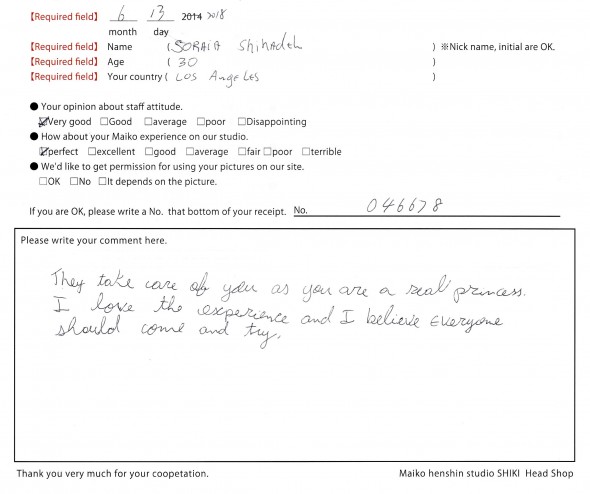 【Required field】 6 13 2014 2018
month day
【Required field】 Name ( SORAIA Shihadeh ) ※Nick name, initial are OK.
【Required field】 Age ( 30 )
【Required field】 Your country ( Los Angeles )
● Your opinion about staff attitude.
☑Very good □Good □average □poor □Disappointing
● How about your Maiko experience on our studio.
☑perfect □excellent □good □average □fair □poor □terrible
● We'd like to get permission for using your pictures on our site.
□OK □No □It depends on the picture.
If you are OK, please write a No. that bottom of your receipt. No. 046678
Please write your comment here.
They take care of you as you are a real princess.
I love the experience and I believe Everyone
should come and try.
Thank you very much for your coopetation. Maiko henshin studio SHIKI Head Shop